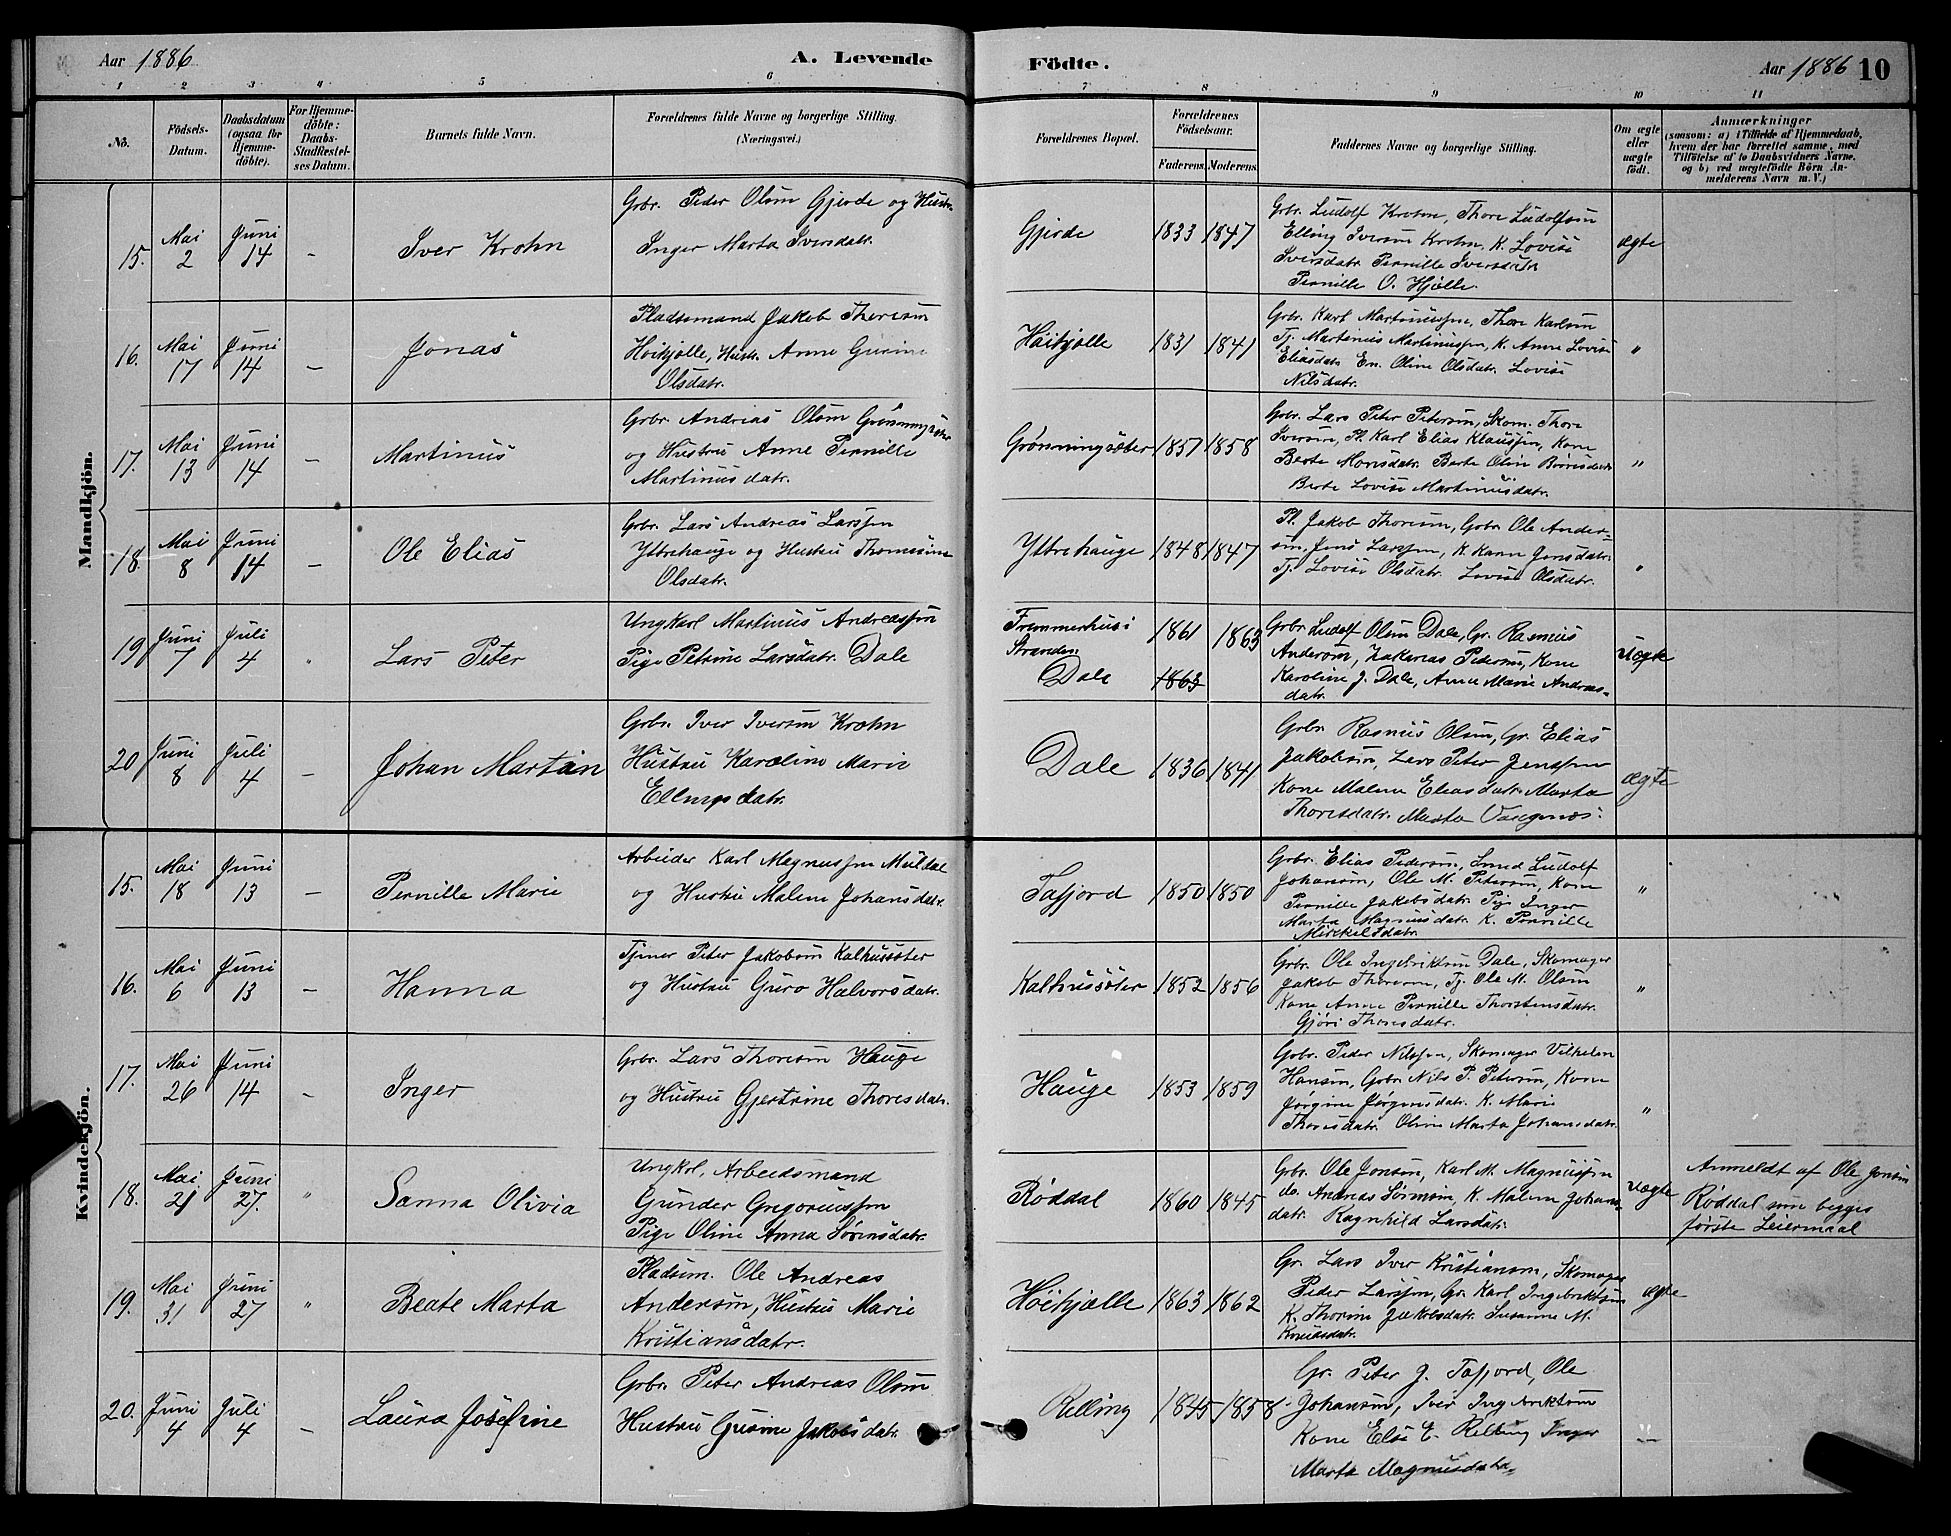 Aar 1886
A. Levende
Födte.
Aar 1886
10
1 2 3 4 5 6 7 8 9 10 11
No.
Födsels-
Datum.
Daabsdatum
(ogsaa for
Hjemme-
döbte).
For Hjemme-
döbte:
Daabs-
Stadfæstel-
ses Datum.
Barnets fulde Navn.
Forældrenes fulde Navne og borgerlige Stilling.
(Næringsvei.)
Forældrenes Bopæl.
Forældrenes
Födselsaar.
Faderens
Moderens
Faddernes Navne og borgerlige Stilling.
Om ægte
eller
uægte
födt.
Anmærkninger
(saasom: a) i Tilfælde af Hjemmedaab,
hvem der har forrettet samme, med
Tilföielse af to Daabsvidners Navne,
og b) ved uægtefödte Börn An-
melderens Navn m. V.)
Mandkjön.
15.
Mai
2
Juni
14
–
Iver Krohn
Grbr. Peder Olsen Gjerde og Hustr.
Inger Marta Iversdatr.
Gjerde
1833
1847
Grbr. Ludolf Krohn, Thore Ludolfsen
Elling Iversen Krohn, K. Lovise
Iversdatr. Pernille Iversdatr.
Pernille O. Hjelle.
ægte
16.
Mai
17
Juni
14
–
Jonas
Pladsemand Jakob Thoresen
Höihjelle, Hustr. Anne Gurine
Olsdatr.
Höihjelle
1831
1841
Grbr. Karl Martinussen, Thore Karlsen
Tj. Martinus Martinussen, K. Anne Lovise
Eliasdatr. En. Oline Olsdatr. Lovise
Nilsdatr.
"
17.
Mai
13
Juni
14
–
Martinus
Grbr. Andreas Olsen Grönningsæter
og Hustru Anne Pernille
Martinusdatr.
Grönningsæter
1857
1858
Grbr. Lars Peter Petersen, Skom. Thore
Iversen, Pl. Karl Elias Klaussen, Kone
Berte Monsdatr. Berte Oline
Berte Lovise Martinusdatr.
"
18.
Mai
8
Juni
14
–
Ole Elias
Grbr. Lars Andreas Larssen
Ytrehauge og Hustru Thomasine
Olsdatr.
Ytrehauge
1848
1847
Pl. Jakob Thoresen, Grbr. Ole Ander-
sen, Jens Larssen, K. Karen Jensdatr.
Tj. Lovise Olsdatr. Lovise Olsdatr.
"
19
Juni
7
Juli
4
"
Lars Peter
Ungkarl Martinus Andreassen
Pige Petrine Larsdatr. Dale
Fremmerhus i
Stranden
Dale
1861
1863
1863
Grbr. Ludolf Olsen Dale, Gr. Rasmus
Andersen, Zakarias Pedersen, Kone
Karoline J. Dale, Anne Marie Andreas-
datr.
uægte
20
Juni
8
Juli
4
–
Johan Martin
Grbr. Iver Iversen Krohn
Hustru Karoline Marie
Ellingsdatr.
Dale
1836
1841
Grbr. Rasmus Olsen, Gr. Elias
Jakobsen, Lars Peter Jenssen
Kone Malene Eliasdatr. Marta
Thoresdatr. Marta
ægte
Kvindekjön.
15.
Mai
18
Juni
13
–
Pernille Marie
Arbeider Karl Magnussen Muldal
og Hustru Malene Johansdatr.
Tafjord
1850
1850
Grbr. Elias Pedersen, Smed Ludolf
Johansen, Ole M. Petersen, Kone
Pernille Jakobsdatr. Pige Inger
Marta Magnusdatr. K. Pernille
Mikkelsdatr.
"
16.
Mai
6
Juni
13
–
Hanna
Tjener Peter Jakobsen Kalhussæter
og Hustru Guro Halvorsdatr.
Kalhussæter
1852
1856
Grbr. Ole Ingebriktsen Dale, Skomager
Jakob Thoresen, Tj. Ole M. Olsen
Kone Anne Pernille Thorstensdatr.
Gjöri Thoresdatr.
"
17.
Mai
26
Juni
14
–
Inger
Grbr. Lars Thoresen Hauge
og Hustru Gjertine Thoresdatr.
Hauge
1853
1859
Grbr. Peder Nilssen, Skomager Vilhelm
Hansen, Grbr. Nils P. Petersen, Kone
Jörgine Jörgensdatr. K. Marie
Thoresdatr. Oline Marta Johansdatr.
"
18.
Mai
21
Juni
27.
"
Sanna Olivia
Ungkrl, Arbeidsmand
Gunder Gregoriussen
Pige Oline Anna Sörensdatr.
Röddal
1860
1845
Grbr. Ole Jonsen, Karl M. Magnussen
do. Andreas Sörensen, K. Malene Johans-
datr. Ragnhild Larsdatr.
uægte
Anmeldt af Ole Jonsen
Röddal som begges
förste Leiermaal
19.
Mai
31
Juni
27
"
Beate Marta
Pladsem. Ole Andreas
Andersen, Hustru Marie
Kristiansdatr.
Höihjelle
1863
1862
Gr. Lars Iver Kristiansen, Skomager
Peder Larssen, Gr. Karl Ingebriktsen
K. Thorine Jakobsdatr. Susanne M.
Knudsdatr.
ægte
20.
Juni
4
Juli
4
–
Laura Josefine
Grbr. Peter Andreas Olsen
Hustru Gurine Jakobsdatr.
Relling
1845
1858
Gr. Peter J. Tafjord, Ole
Johansen, Iver Ingebriktsen
Kone Else E. Relling Inger
Marta Magnusdatr.
–